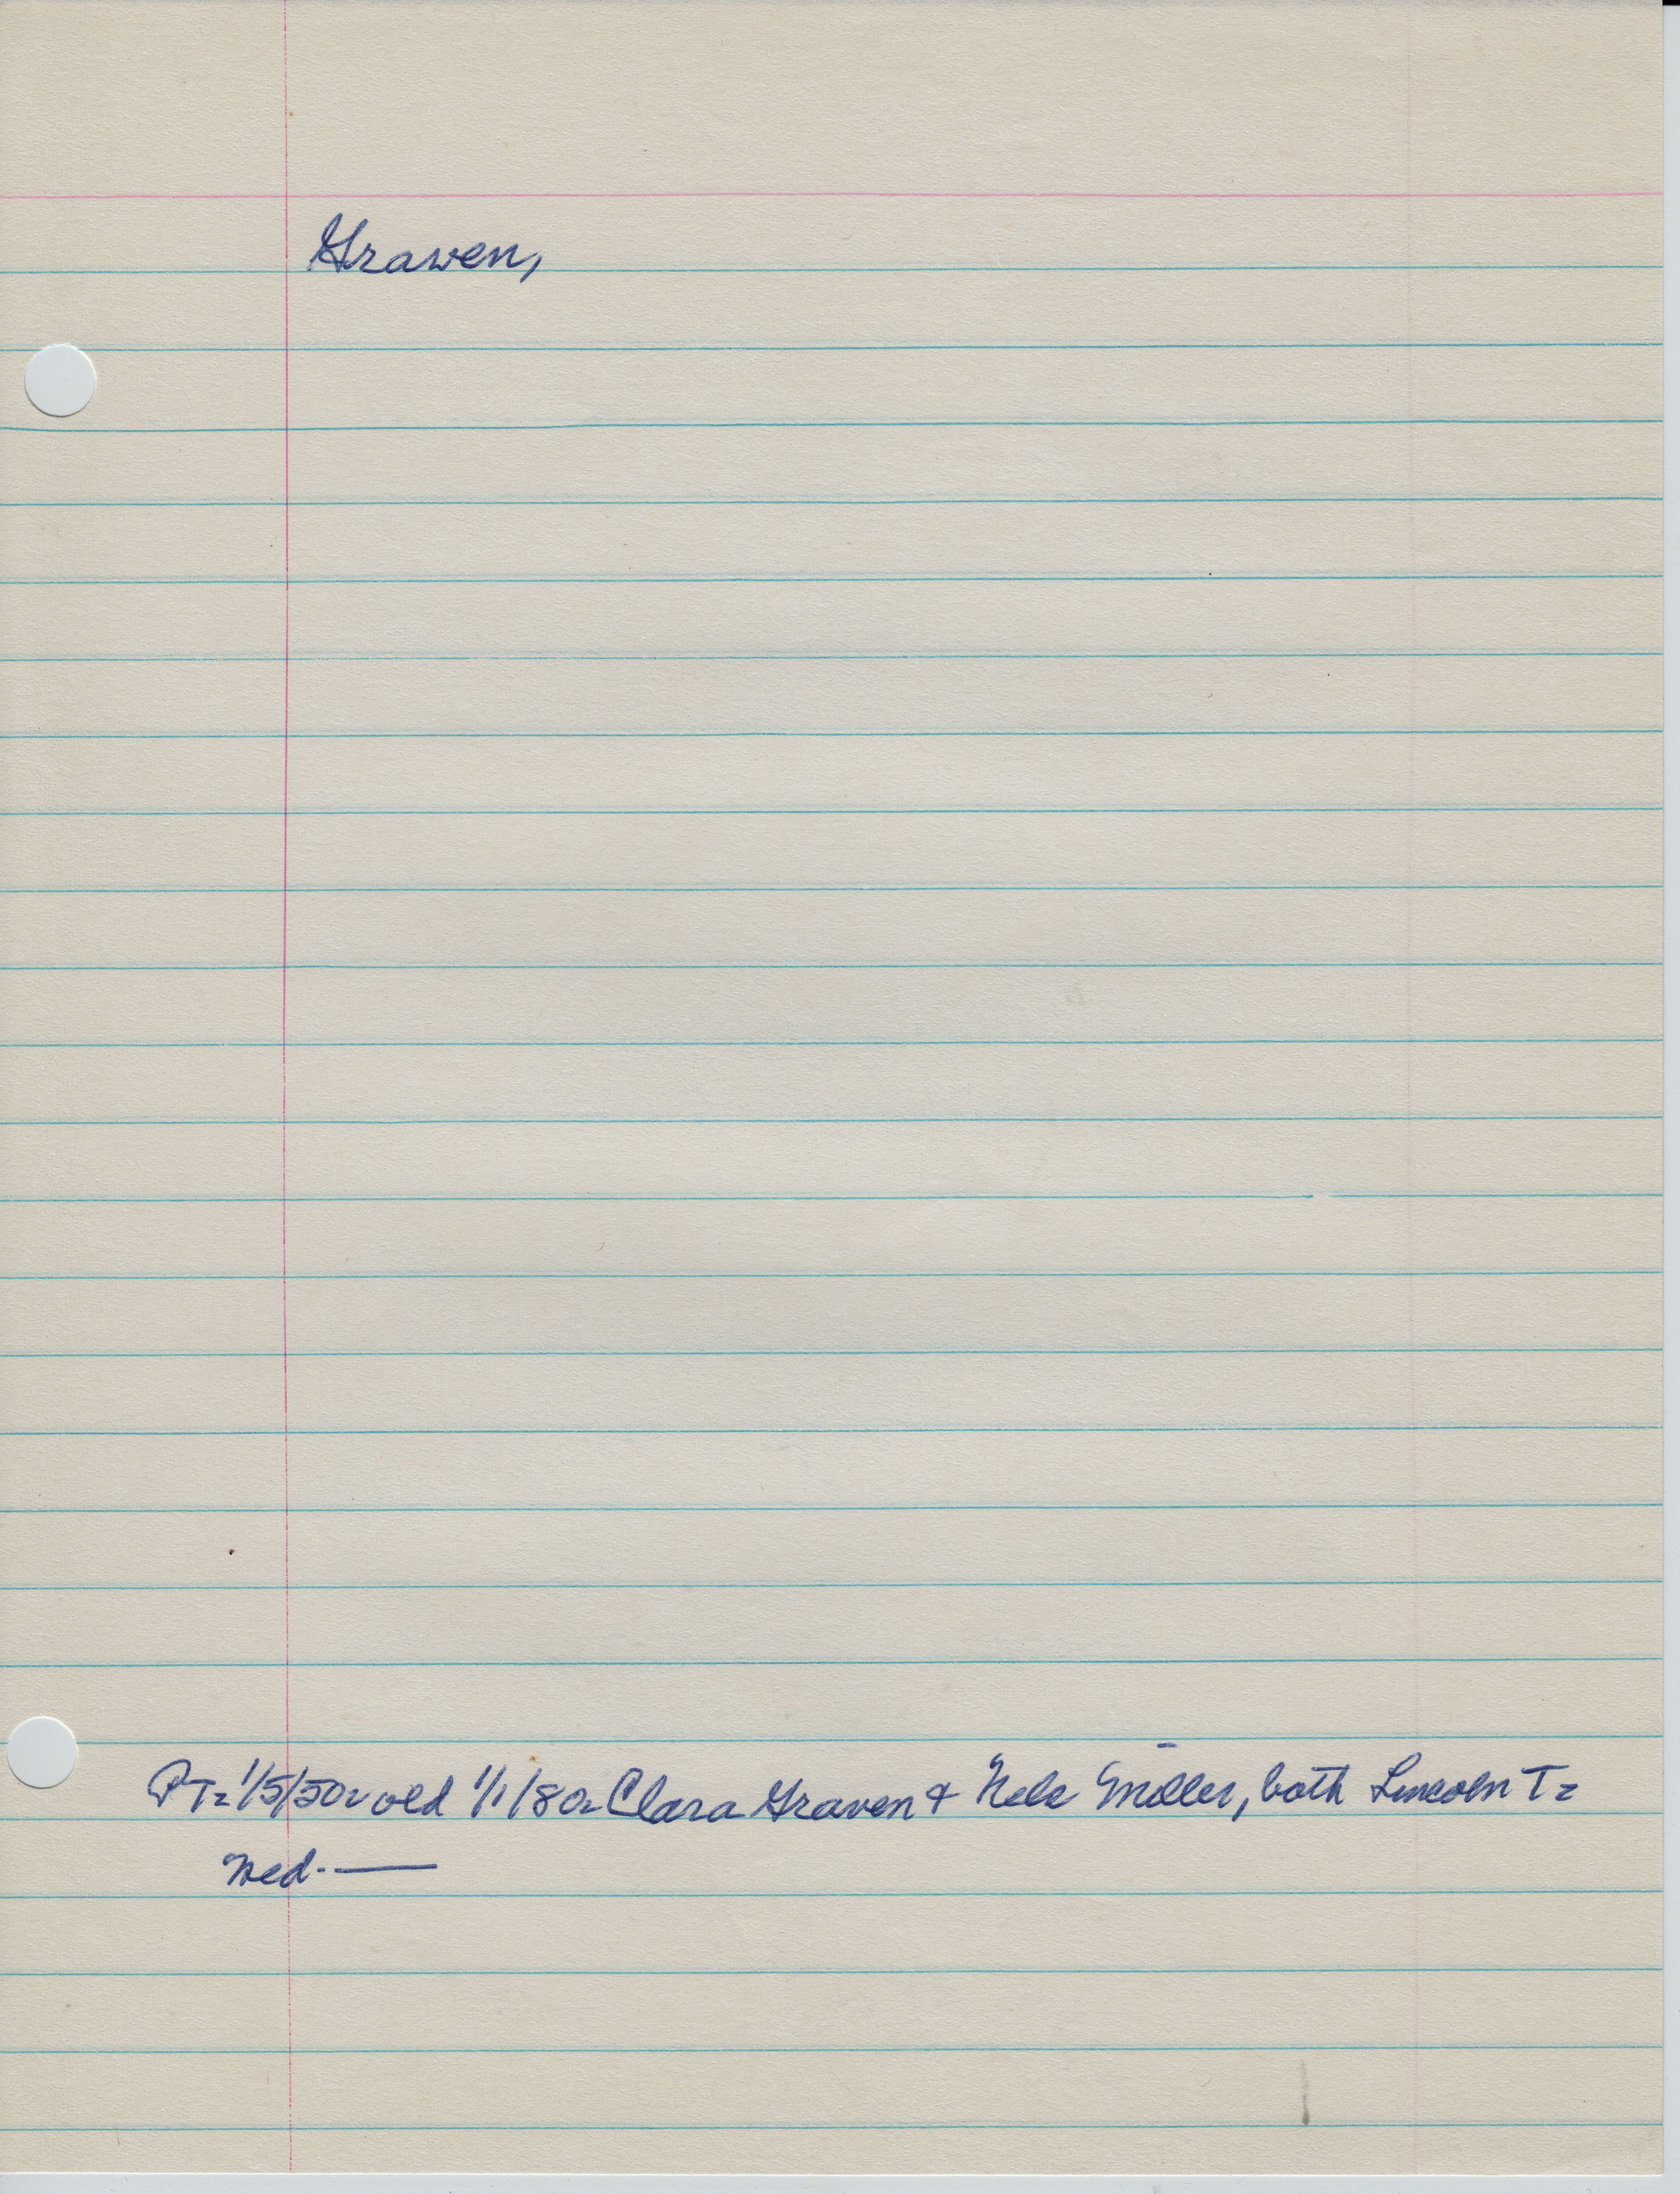 Grawen,
PTz 1/5/50 old 1/1/80 Clara Graven & Nels Miller, both Lincoln Tz
Wed. —